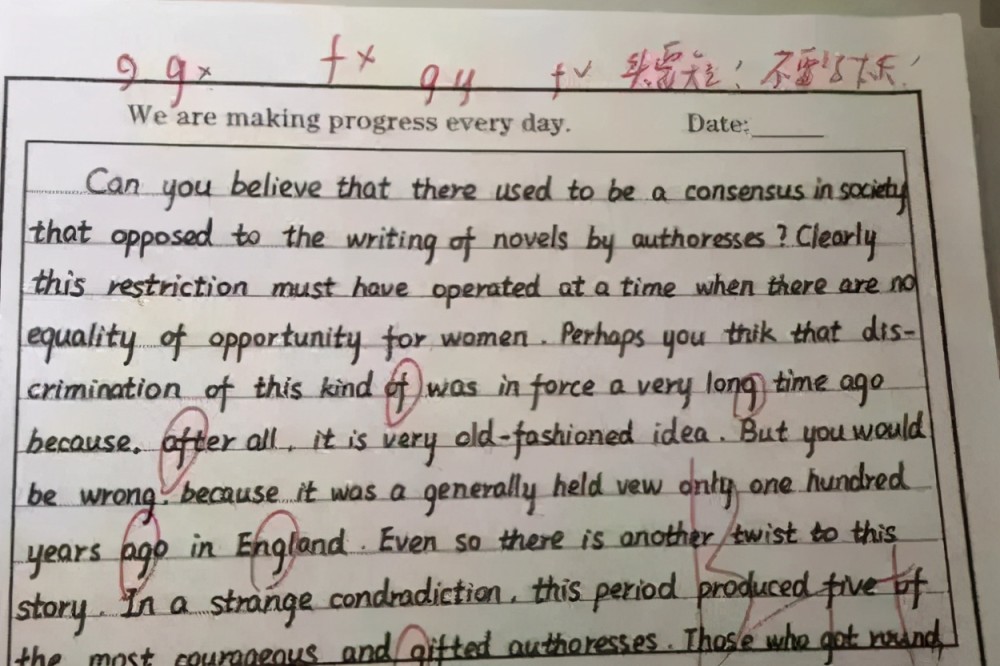 g g × f × g y f ✓
We are making progress every day. Date:
Can you believe that there used to be a consensus in society
that opposed to the writing of novels by authoresses ? Clearly
this restriction must have operated at a time when there are no
equality of opportunity for women . Perhaps you thik that dis-
crimination of this kind of was in force a very long time ago
because, after all, it is very old-fashioned idea . But you would
be wrong, because it was a generally held vew only one hundred
years ago in England . Even so there is another twist to this
story . In a strange condradiction, this period produced five of
the most courageous and gifted authoresses. Those who got round,